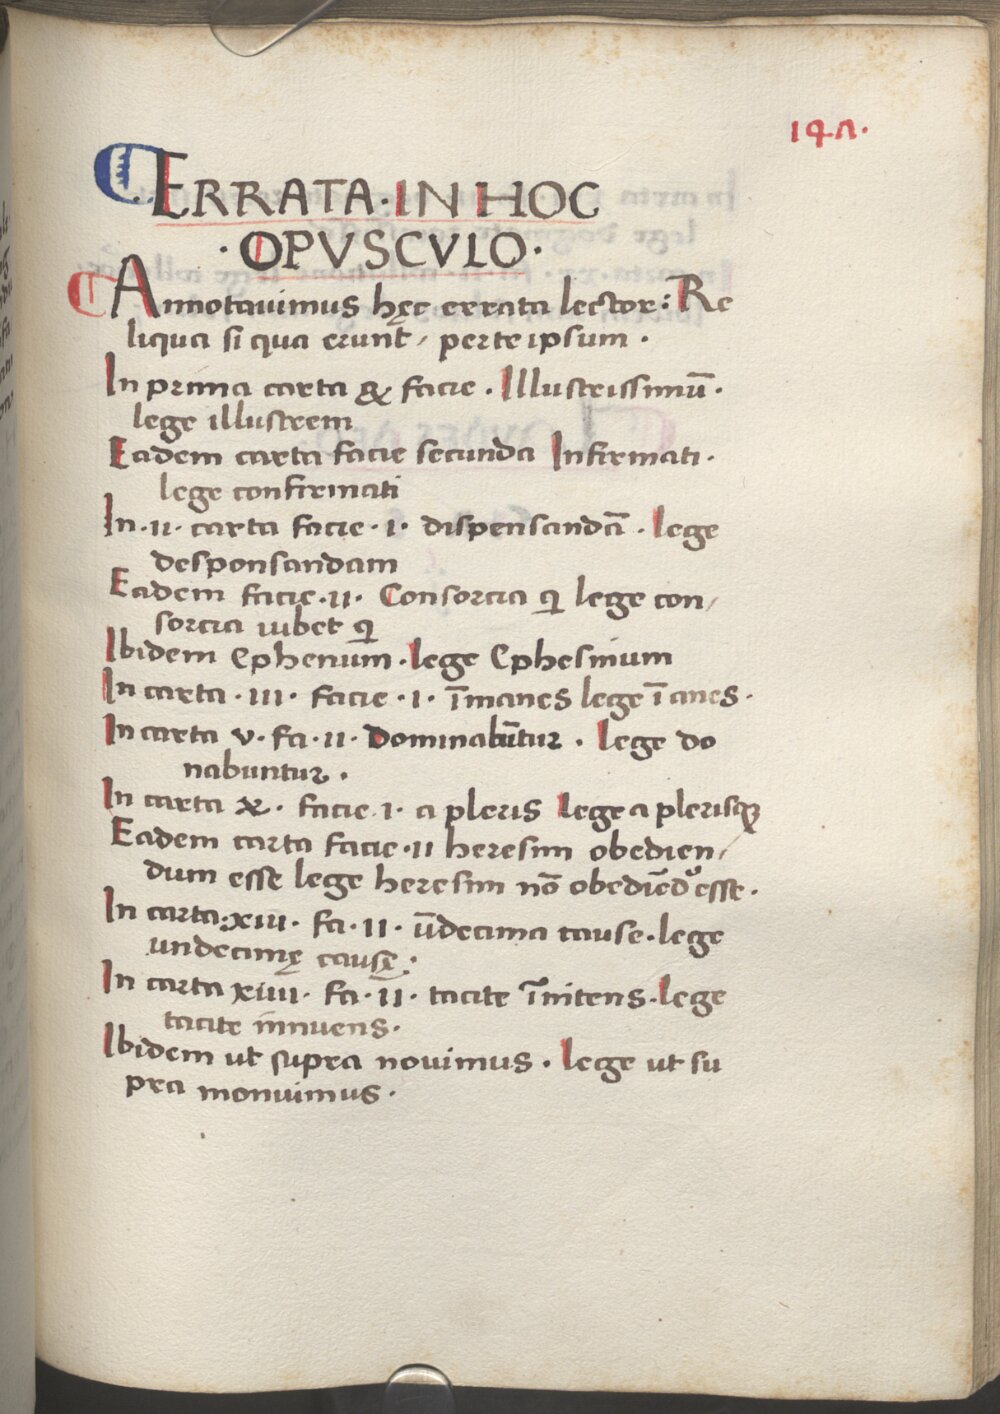 147.
ERRATA·IN HOC
·OPVSCVLO·
Annotauimus hęc errata lector: Re
liqua si qua erunt, per te ipsum.
In prima carta & facie. Illustrissimū.
lege illustrem
Eadem carta facie secunda Infirmati.
lege confirmati
In·II· carta facie·I· dispensandā. Lege
desponsandam
Eadem facie·II· Consorcia qi lege con,
sorcia iubet qi
Ibidem Ephenum. lege Ephesinum
In carta·III· facie·I· īmanes lege īanes.
In carta V. fa·II· Dominabūtur. Lege do
nabuntur.
In carta X. facie I· a pleris Lege a plerisq;
Eadem carta facie·II heresim obedien,
dum esse lege heresim nō obediēdū esse.
In carta·XIII. fa·II· ūdecima cause. lege
undecimę causę:
In carta XIIII. fa·II· tacite īnitens. Lege
tacite innuens.
Ibidem ut supra nouimus. Lege ut su
pra monuimus.